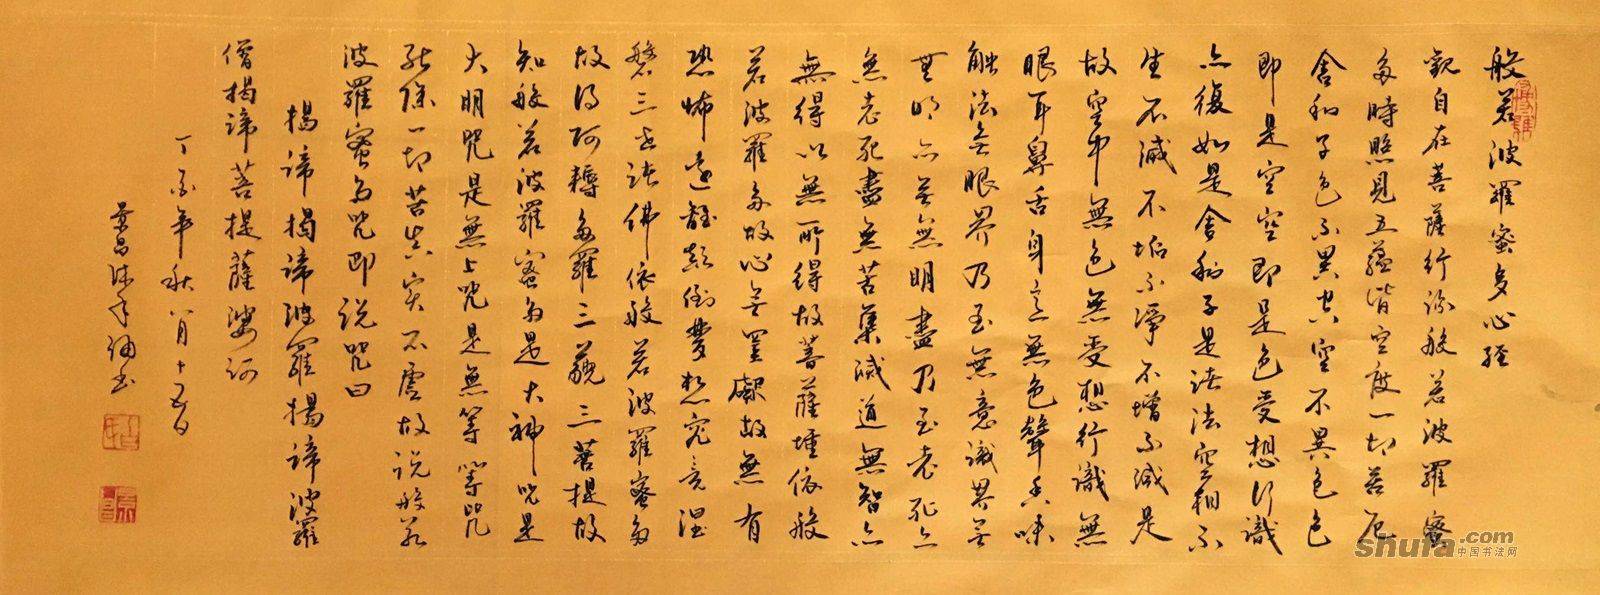 般若波羅蜜多心經
觀自在菩薩行深般若波羅蜜
多時照見五蘊皆空度一切苦厄
舍利子色不異空空不異色色
即是空空即是色受想行識
亦復如是舍利子是諸法空相不
生不滅不垢不淨不增不減是
故空中無色無受想行識無
眼耳鼻舌身意無色聲香味
觸法無眼界乃至無意識界無
無明亦無無明盡乃至老死亦
無老死盡無苦集滅道無智亦
無得以無所得故菩薩埵依般
若波羅多故心無罣礙故無有
恐怖遠離顛倒夢想究竟涅
槃三世諸佛依般若波羅蜜多
故得阿耨多羅三藐三菩提故
知般若波羅蜜多是大神咒是
大明咒是無上咒是無等等咒
能除一切苦真實不虛故說般若
波羅蜜多咒即說咒曰
揭諦揭諦波羅揭諦波羅
僧揭諦菩提薩婆訶
丁酉年秋八月十五日
景昌沐手
shufa.com
中国书法网